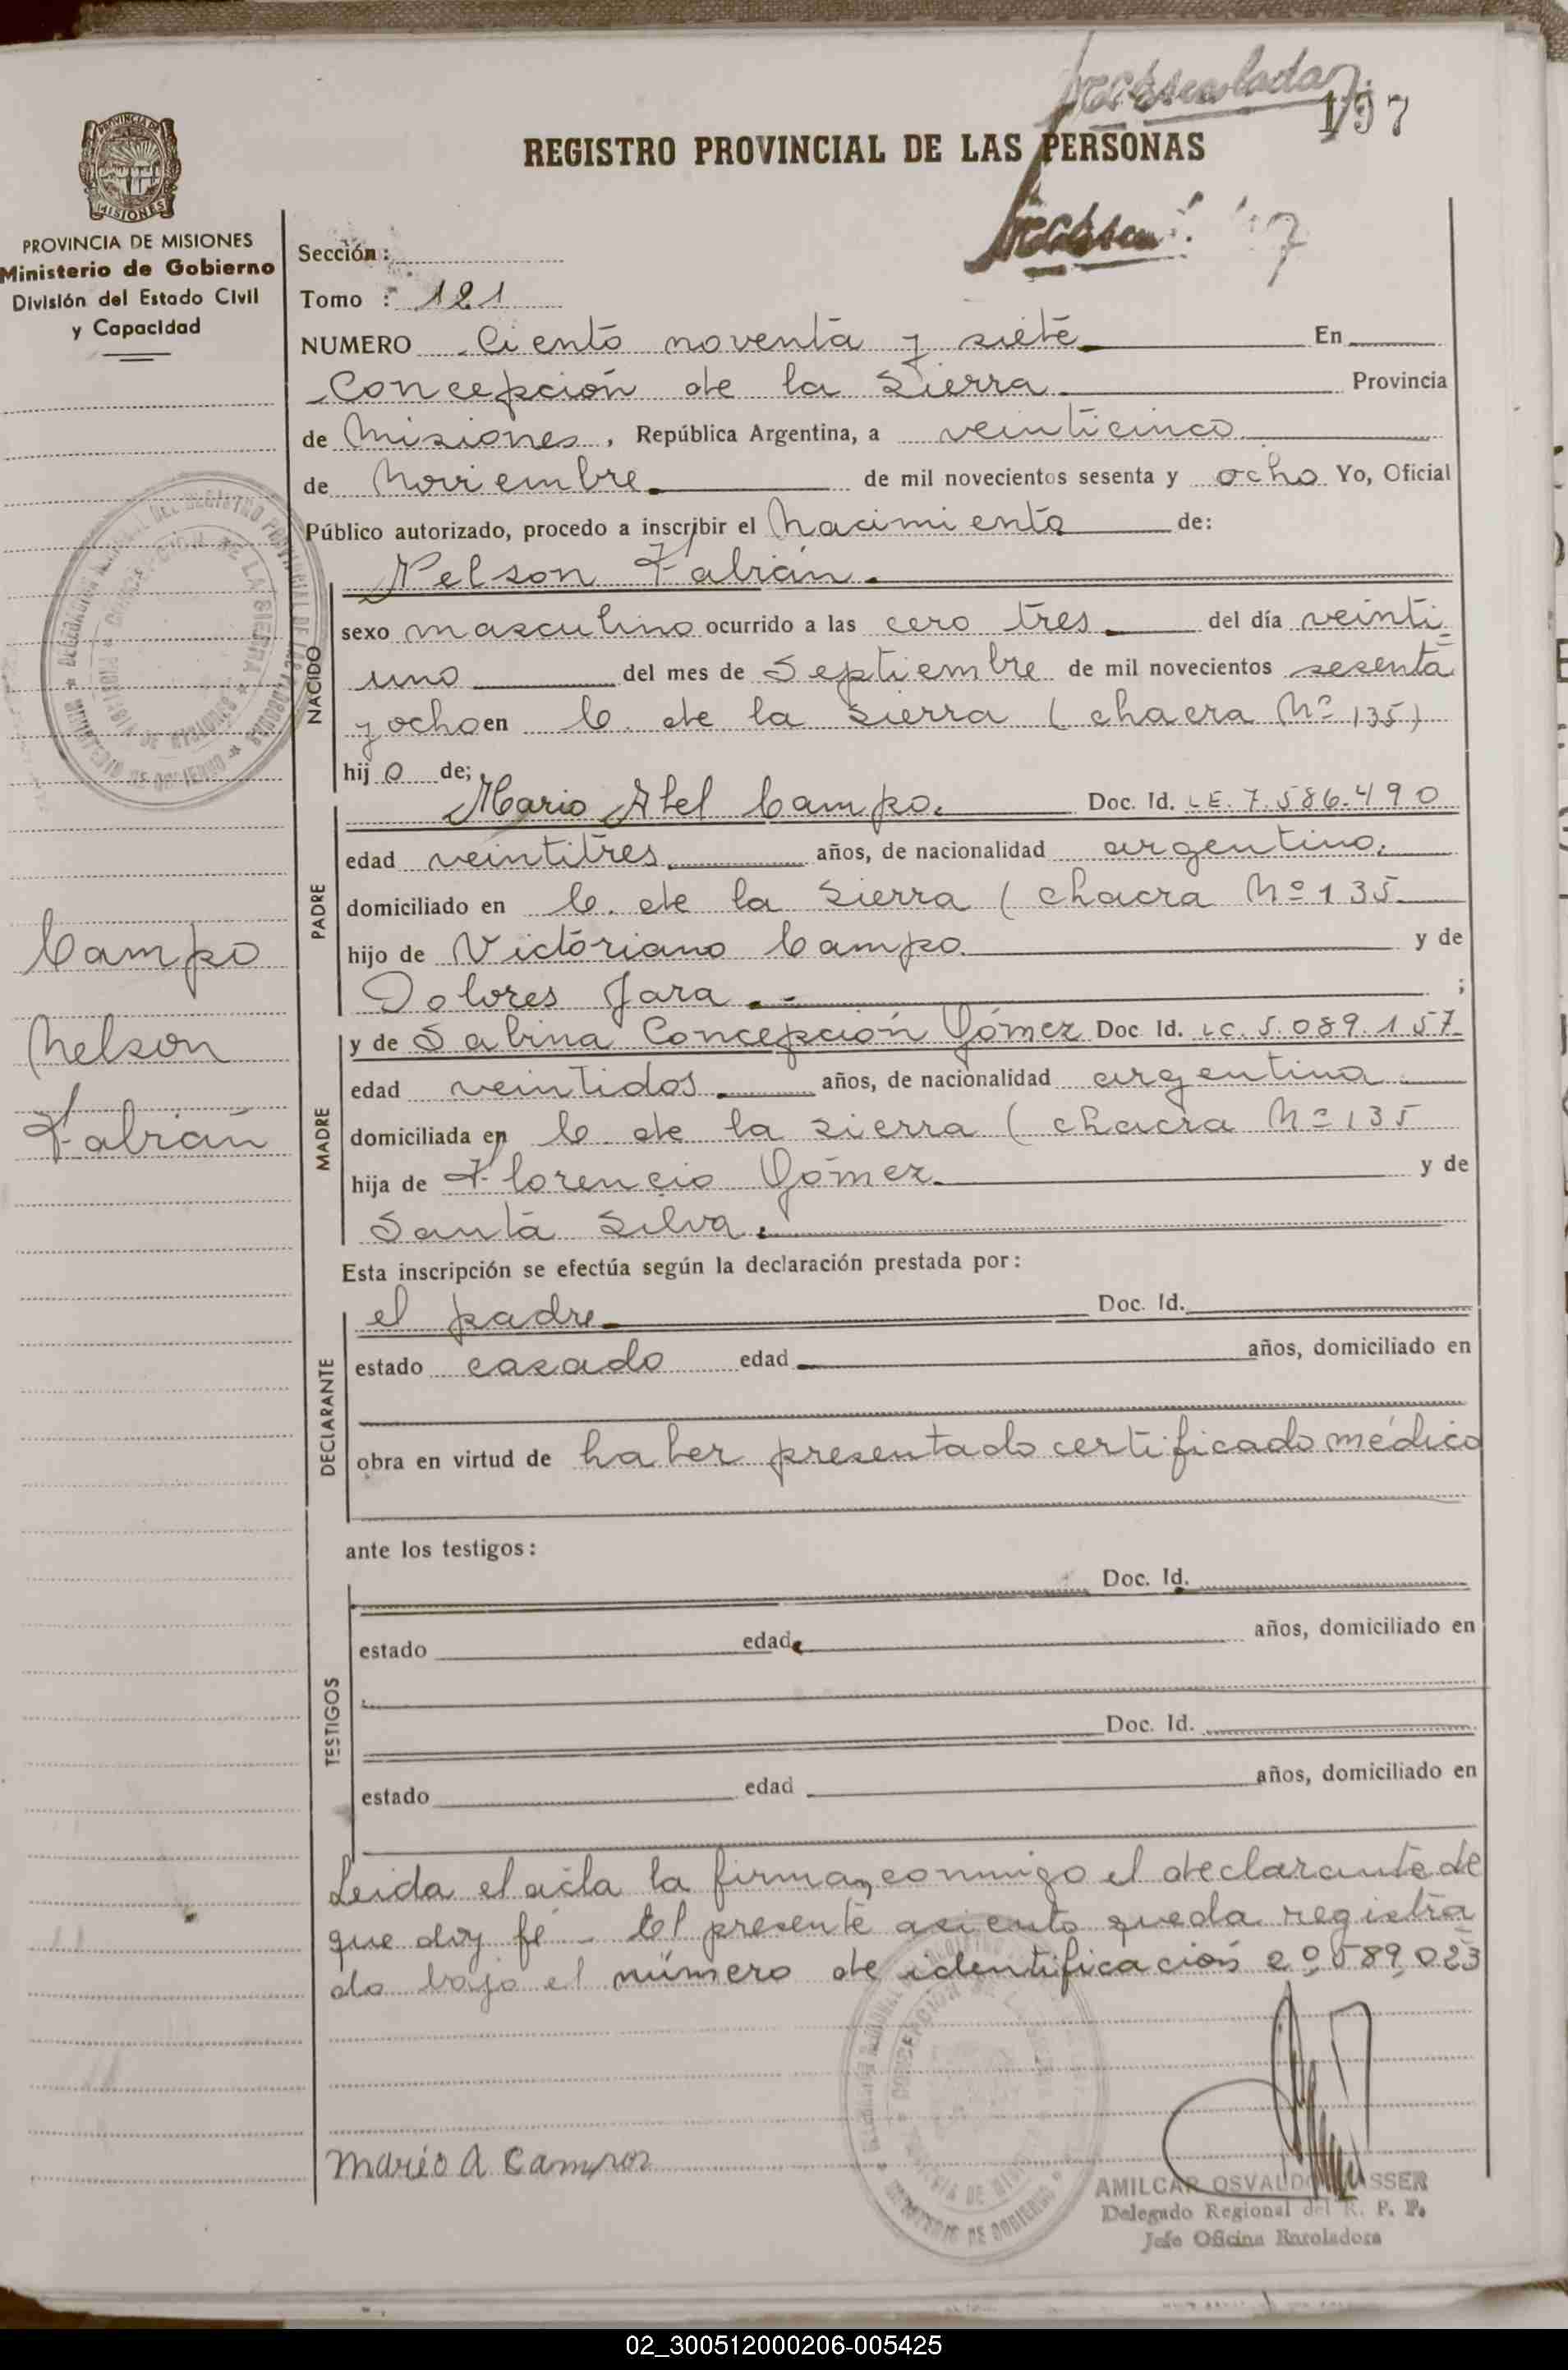 197
REGISTRO PROVINCIAL DE LAS PERSONAS
PROVINCIA DE MISIONES
Ministerio de Gobierno
División del Estado Civil
y Capacidad
Sección:
Tomo : 121
NUMERO Ciento noventa y siete En
Concepción de la Sierra Provincia
de Misiones, República Argentina, a veinticinco
de Noviembre de mil novecientos sesenta y ocho Yo, Oficial
Público autorizado, procedo a inscribir el Nacimiento de:
Nelson Fabián.
NACIDO
sexo masculino ocurrido a las cero tres del día veinti
uno del mes de Septiembre de mil novecientos sesenta
y ocho en C. de la Sierra (chacra Nº 135)
hijo de;
PADRE
Mario Abel Campo. Doc. Id. LE. 7.586.490
edad veintitres años, de nacionalidad argentino.
domiciliado en C. de la Sierra (chacra Nº 135
hijo de Victoriano Campo. y de
Dolores Jara . - ;
MADRE
y de Sabina Concepción Gómez Doc. Id. LC. 5.089.157
edad veintidos años, de nacionalidad argentina
domiciliada en C. de la Sierra (chacra Nº 135
hija de Florencio Gómez y de
Santa Silva.
Campo
Nelson
Fabián
Esta inscripción se efectúa según la declaración prestada por:
DECLARANTE
el padre Doc. Id.
estado casado edad años, domiciliado en
obra en virtud de haber presentado certificado médico
ante los testigos:
TESTIGOS
Doc. Id.
estado edad años, domiciliado en
Doc. Id.
estado edad años, domiciliado en
Leida el acta la firman conmigo el declarante de
que doy fé - El presente asiento queda registra
do bajo el número de identificación 20.589.023
Mario A Campos
AMILCAR OSVALDO SSER
Delegado Regional del R. P. P.
Jefe Oficina Enroladora
02_300512000206-005425